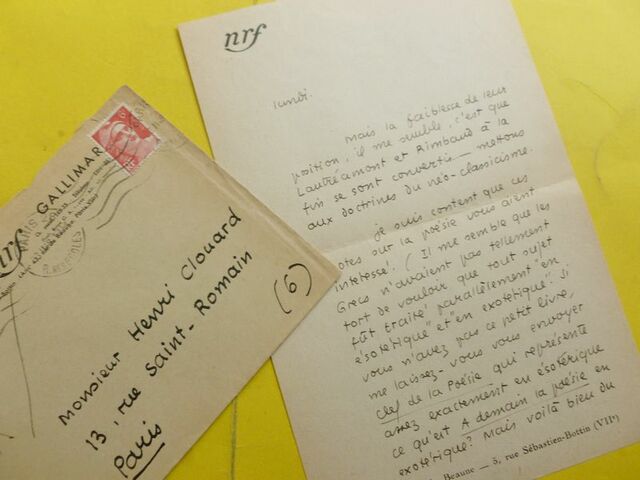 nrf
GALLIMARD
PARIS
nrf
Monsieur Henri Clouard
13, rue Saint-Romain
(6)
Paris
nrf
lundi.
Mais la faiblesse de leur
position, il me semble, c'est que
Lautréamont et Rimbaud à la
fin se sont convertis — mettons
aux doctrines du néo-classicisme.
je suis content que ces
otes sur la poésie vous aient
intéressé. (Il me semble que les
Grecs n'avaient pas tellement
tort de vouloir que tout sujet
fût traité parallèlement "en
ésotérique" et "en exotérique". Si
vous n'avez pas ce petit livre,
me laissez-vous vous envoyer
clef de la poésie qui représente
assez exactement en ésotérique
ce qu'est A demain la poésie en
exotérique? Mais voilà bien du
Beaune — 5, rue Sébastien-Bottin (VIIe)